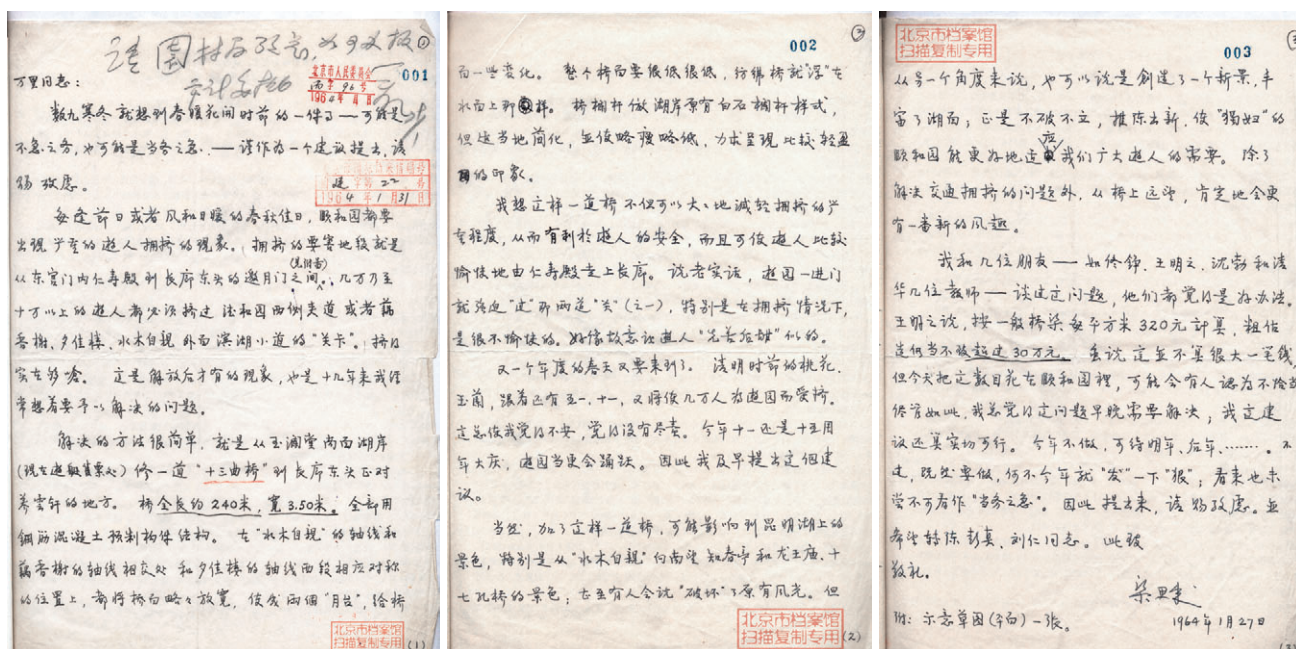 请园林局研究
①
001
万里同志：
北京市人民委员会
1964年
数九寒冬就想到春暖花开时节的一件事——可能是
不急之务，也可能是当务之急，——谨作为一个建议提出，请
赐攷虑。
建字第22号
1964年1月31日
每逢节日或者风和日暖的春秋佳日，颐和园都要
出现严重的遊人拥挤的现象。拥挤的要害地段就是
从东宫门内仁寿殿到长廊东头的邀月门之间(见附图)；几万乃至
十万以上的遊人都必须挤过德和园西侧夹道或者藕
香榭、夕佳楼、水木自親外面滨湖小道的“关卡”。挤得
实在够呛。这是解放后才有的现象，也是十九年来我经
常想着要予以解决的问题。
解决的方法很简单，就是从玉澜堂前面湖岸
(现在遊艇售票处)修一道“十三曲桥”到长廊东头正对
养云轩的地方。桥全长约240米，宽3.50米，全部用
鋼筋混凝土预制构件结构。在“水木自親”的轴线和
藕香榭的轴线相交处和夕佳楼的轴线西段相应对称
的位置上，都将桥面略々放宽，使成两個“月台”，给桥
北京市档案馆
扫描复制专用
(1)
002
②
面一些变化。整个桥面要很低很低，彷彿桥就“浮”在
水面上那样。桥栏杆倣湖岸原有白石栏杆样式，
但适当地简化，並使略瘦略低，力求呈现比较轻盈
的印象。
我想这样一道桥不但可以大大地减轻拥挤的严
重程度，从而有利於遊人的安全，而且可使遊人比较
愉快地由仁寿殿走上长廊。说老实话，遊园一进门
就强迫“过”那两道“关”(之一)，特别是在拥挤情况下，
是很不愉快的。好像故意让遊人“先苦后甜”似的。
又一个年度的春天又要来到了。清明时节的桃花、
玉蘭，跟着还有五一、十一，又将使几万人为遊园而受挤。
这总使我觉得不安，觉得没有尽责。今年十一还是十五周
年大庆，遊园当更会踊跃。因此我及早提出这個建
议。
当然，加了这样一道桥，可能影响到昆明湖上的
景色，特别是从“水木自親”向南望知春亭和龙王庙、十
七孔桥的景色；甚至有人会说“破坏”了原有风光。但
北京市档案馆
扫描复制专用
(2)
北京市档案馆
扫描复制专用
003
从另一个角度来说，也可以说是創造了一个新景，丰
富了湖面；正是不破不立，推陈出新，使“獨妇”的
颐和园能更好地适应我们广大遊人的需要。除了
解决交通拥挤的问题外，从桥上远望，肯定地会更
有一番新的风趣。
我和几位朋友——如佟铮、王明之、沈勃和清
华几位教师——谈过这问题，他们都觉得是好办法。
王明之说，按一般桥梁每平方米320元计算，粗估
造价当不致超过30万元。虽说这並不算很大一笔钱，
但今天把这数目花在颐和园裡，可能会有人認为不恰当。
尽管如此，我总觉得这问题早晚需要解决，我这建
议还算实切可行。今年不做，可待明年，后年，……。不
过，既然要做，何不今年就“发”一下“狠”；看来也未
尝不可看作“当务之急”。因此提出来，请赐攷虑。並
希望转陈彭真、刘仁同志。此致
敬礼。
梁思成
附：示意草图(平面)一张。
1964年1月27日
(3)